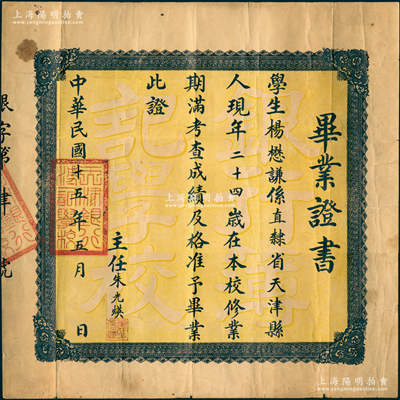 上海陽明拍賣
www.yangmingauction.com
畢業證書
學生楊懋謙係直隸省天津縣
人現年二十四歲在本校修業
期滿考查成績及格准予畢業
此證
主任朱允𤨏
中華民國十五年五月 日
銀字第 肆 號
銀行簿
記學校
上海陽明拍賣
www.yangmingauction.com